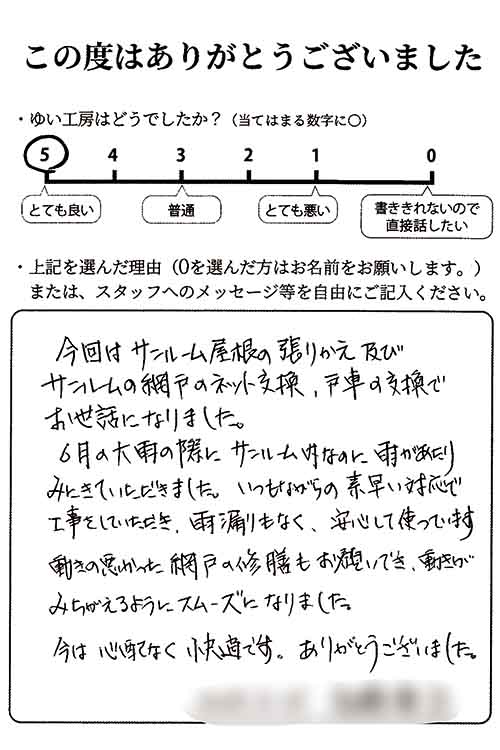 この度はありがとうございました
・ゆい工房はどうでしたか？（当てはまる数字に〇）
5 4 3 2 1 0
とても良い 普通 とても悪い 書ききれないので
直接話したい
・上記を選んだ理由（0を選んだ方はお名前をお願いします。）
または、スタッフへのメッセージ等を自由にご記入ください。
今回は サンルーム屋根の張りかえ及び
サンルームの網戸のネット交換、戸車の交換で
お世話になりました。
6月の大雨の際に サンルーム内なのに 雨があたり
みにきていただきました。いつもながらの素早い対応で
工事をしていただき、雨漏りもなく、安心して使っています
動きの悪かった 網戸の修膳もお願いでき、動きが
みちがえるように スムーズに なりました。
今は 心配なく 快適です。ありがとうございました。